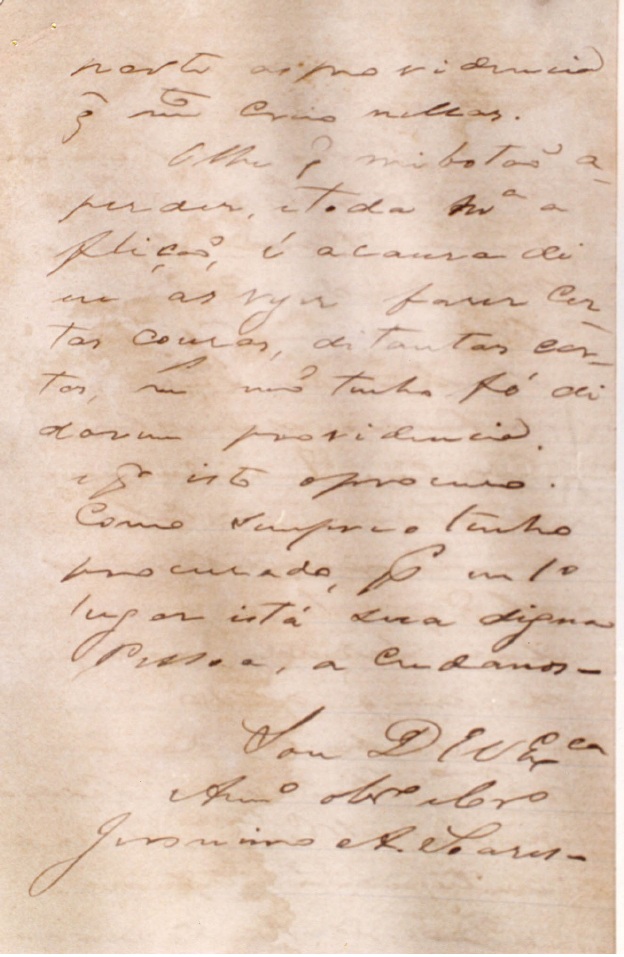 parte as providencias
q̃ não creio nellas.
Olhe q̃ mi botão a-
perder, e toda mª a
flição, é a causa di
eu as fazer cer
tas cousas, di tantas cer-
tos, não tenho fé di
darem providencias.
isto o procuro.
Como sempre o tenho
procurado, em 1º
lugar está sua digna
Pessoa, a Cudanos-
Sou D V Exca
Amº obrº
Jeronimo A. Soares-